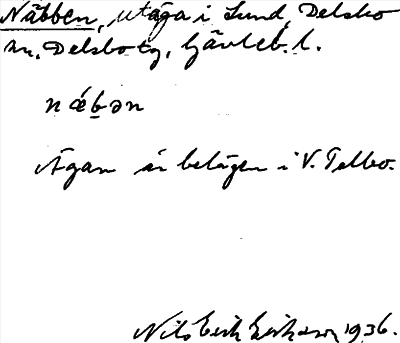 Näbben, utäga i Lund, Delsbo
sn, Delsbo tg, Gävleb. l.
næ̀bən
Ägan är belägen i V. Telbo.
Nils Erik Eriksson 1936.